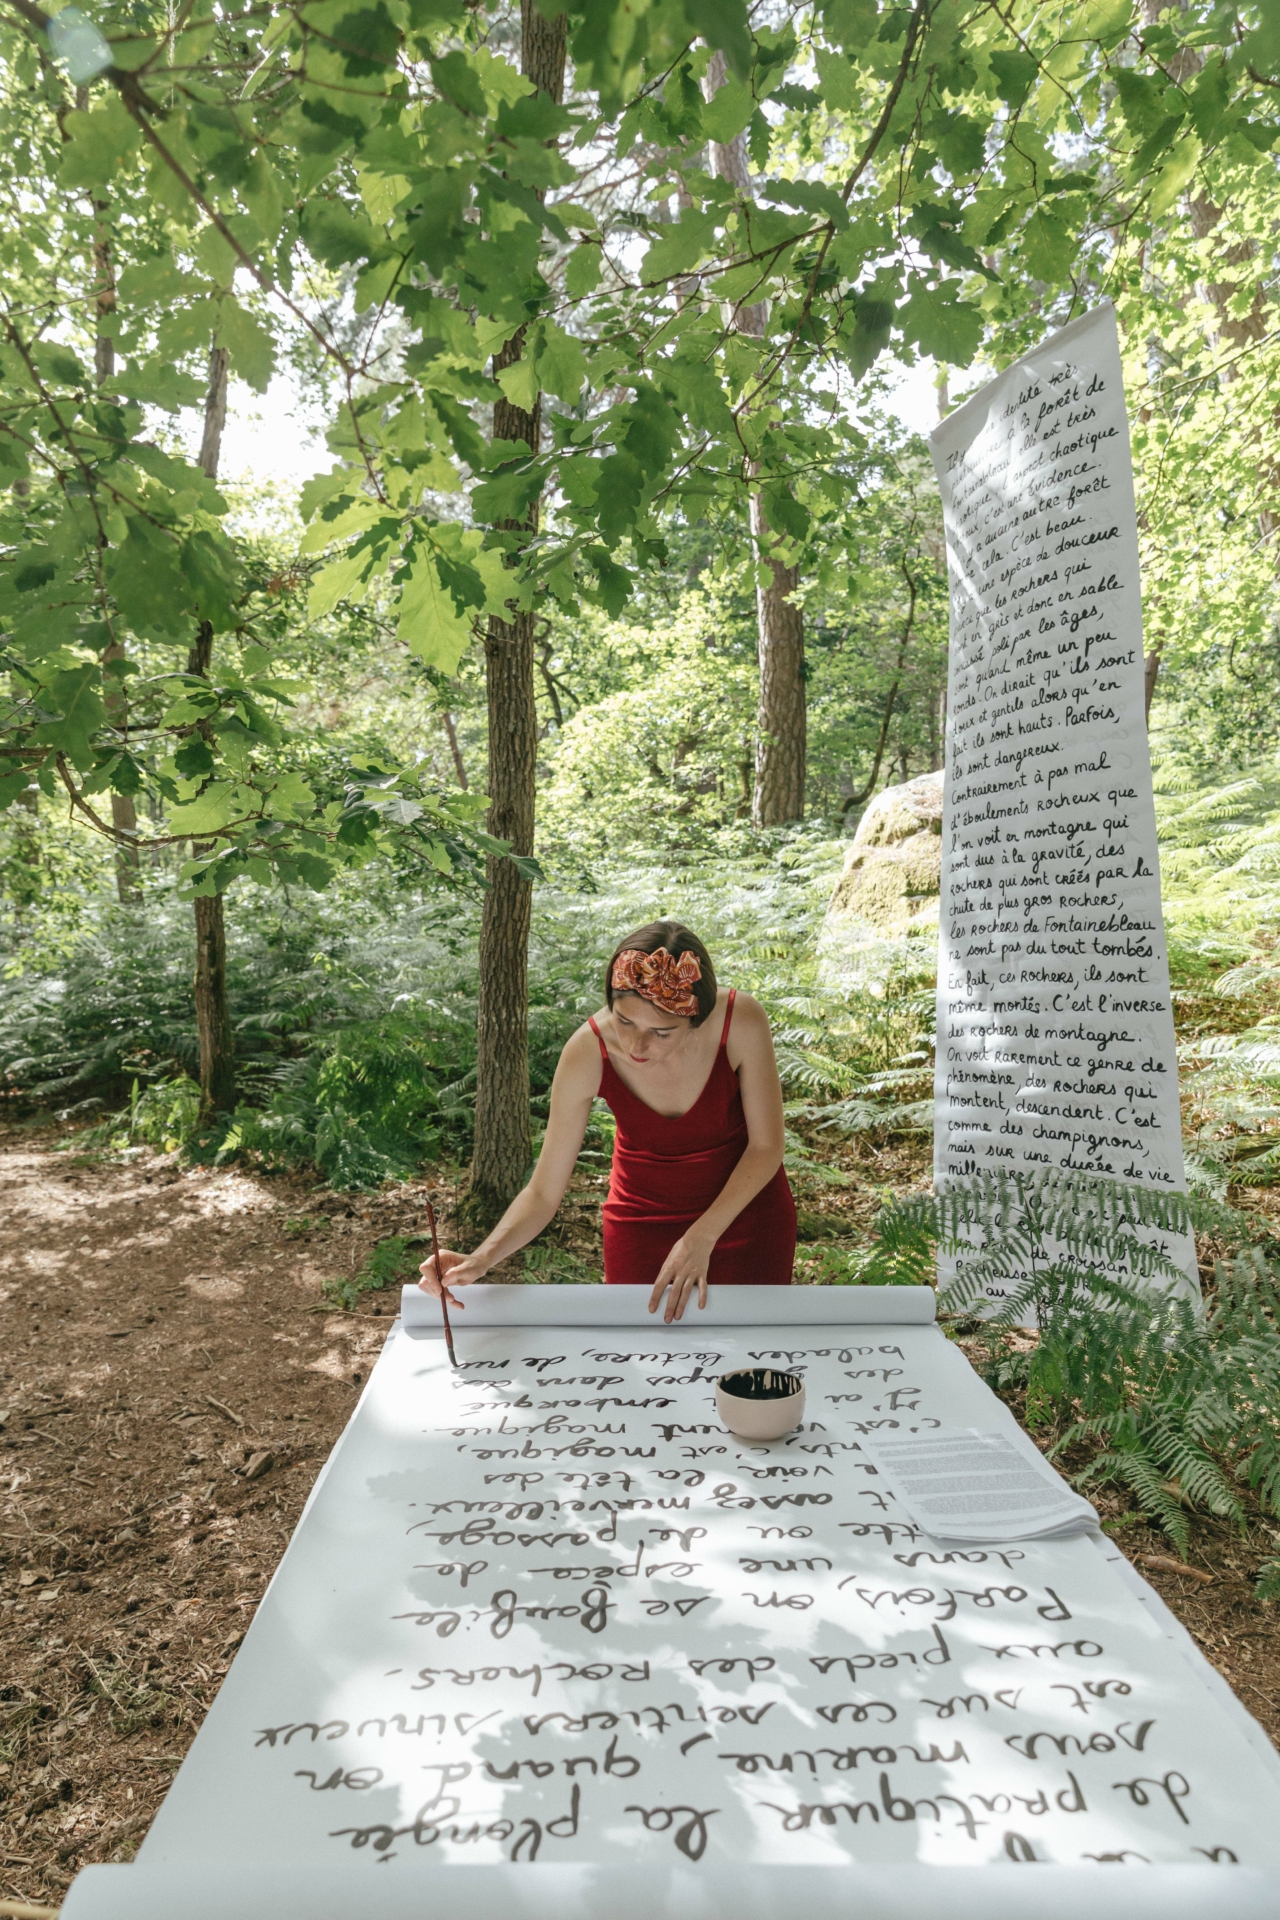 Il y identité très
à la forêt de
Fontainebleau, elle est très
L'aspect chaotique
c'est une évidence.
y a aucune autre forêt
cela. C'est beau.
une espèce de douceur
que les rochers qui
en grès et donc en sable
poli par les âges,
sont quand même un peu
ronds. On dirait qu'ils sont
doux et gentils alors qu'en
fait ils sont hauts. Parfois,
ils sont dangereux.
Contrairement à pas mal
d'éboulements rocheux que
l'on voit en montagne qui
sont dus à la gravité, des
rochers qui sont créés par la
chute de plus gros rochers,
les rochers de Fontainebleau
ne sont pas du tout tombés.
En fait, ces rochers, ils sont
même montés. C'est l'inverse
des rochers de montagne.
On voit rarement ce genre de
phénomène, des rochers qui
montent, descendent. C'est
comme des champignons,
mais sur une durée de vie
peut être
de croissance.
Rocheuse
au
de pratiquer la plongée
sous marine, quand on
est sur ces sentiers sinueux
aux pieds des rochers.
Parfois, on se faufile
dans une espèce de
ou de passage,
assez merveilleux.
voir la tête des
c'est magique,
c'est vraiment magique.
J'ai embarqué
des groupes dans des
balades lecture, de